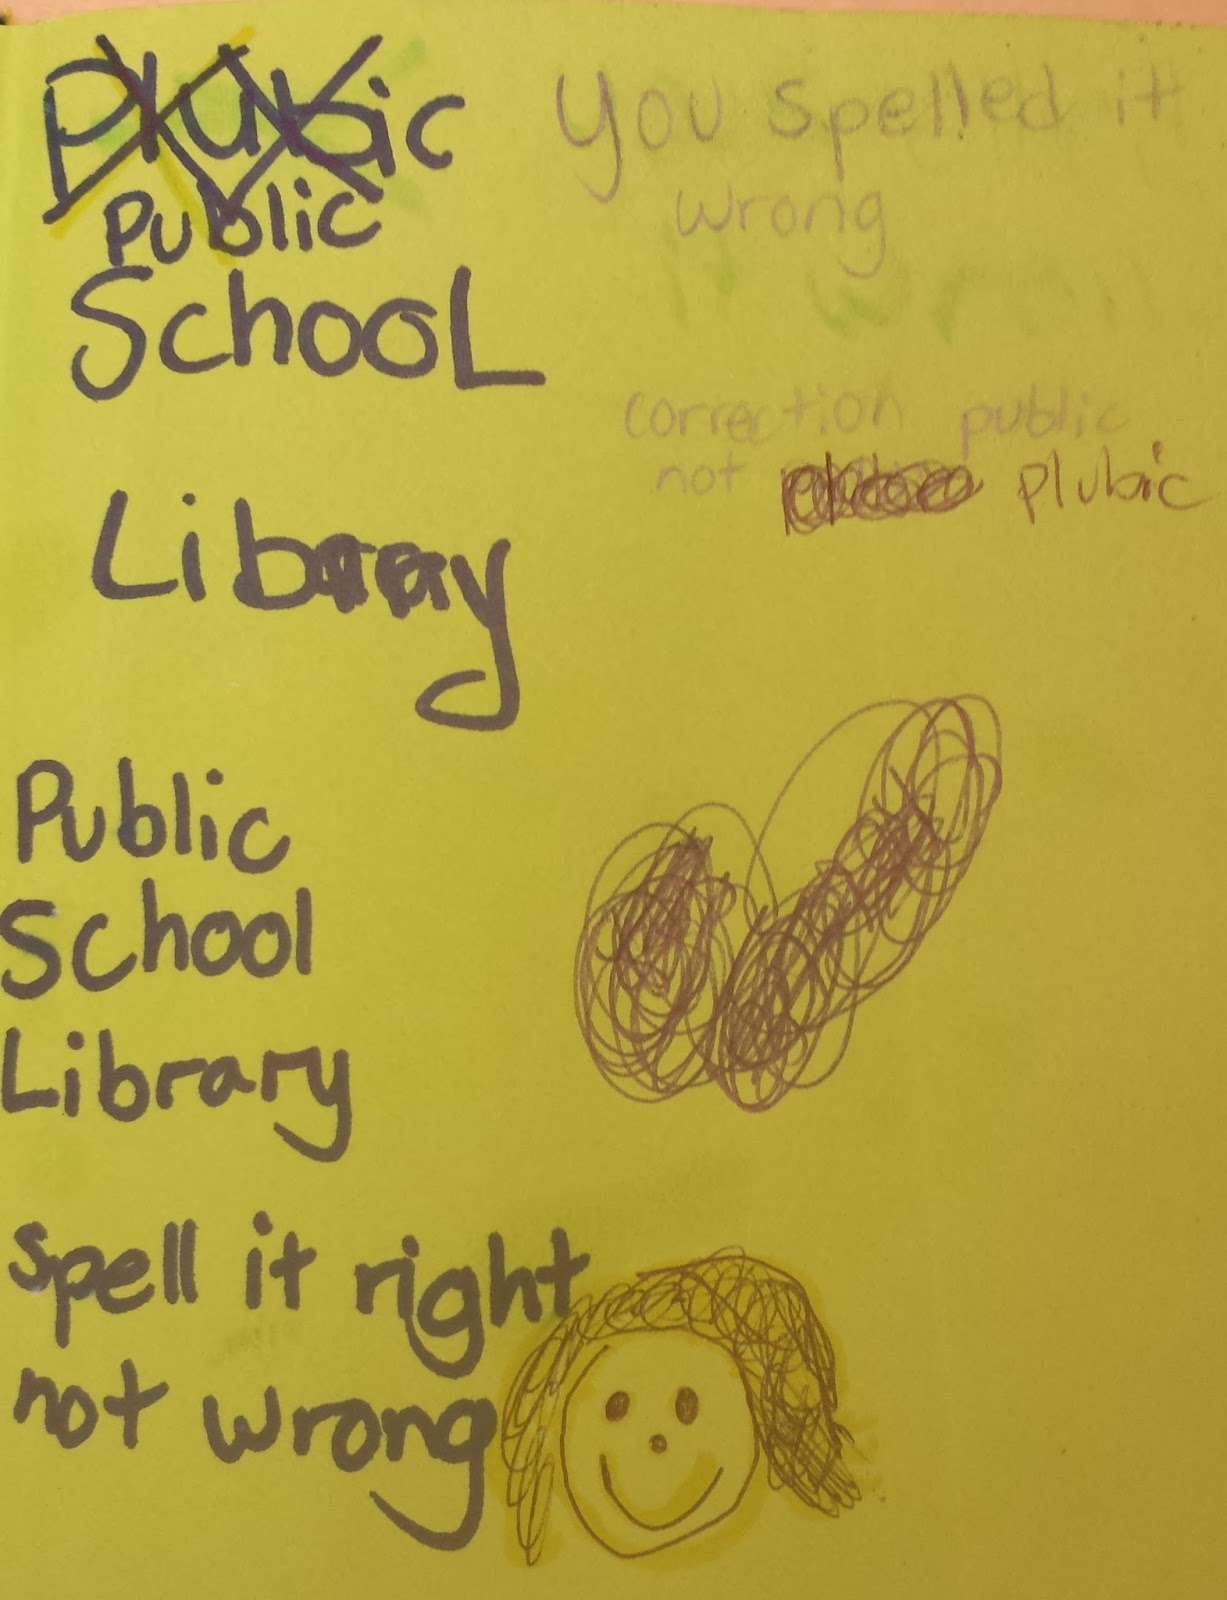 Plubic
Public
School
Library
Public
School
Library
Spell it right
not wrong
You spelled it
wrong
correction public
not plubic